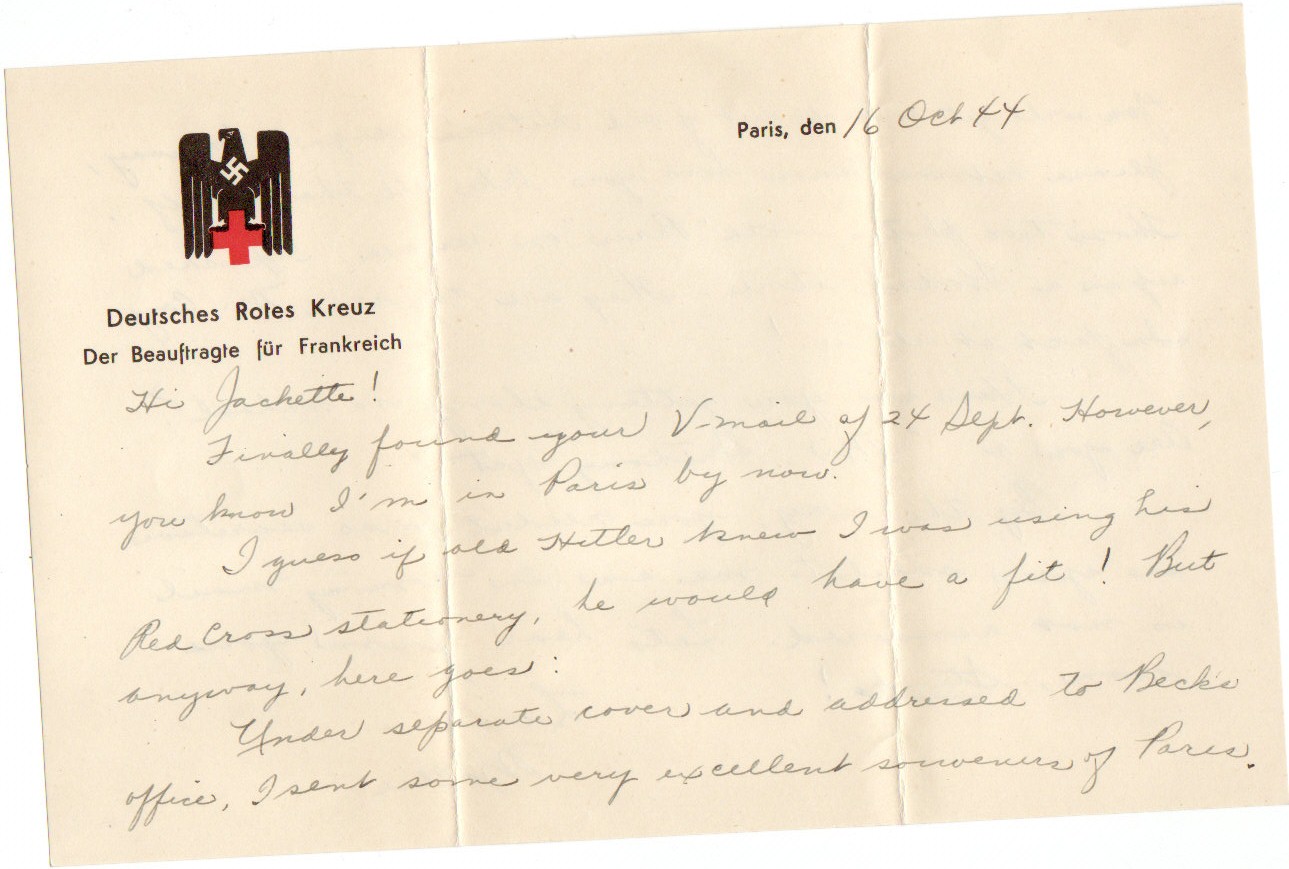 Paris, den 16 Oct 44
Deutsches Rotes Kreuz
Der Beauftragte für Frankreich
Hi Jackette!
Finally found your V-mail of 24 Sept. However,
you know I'm in Paris by now.
I guess if old Hitler knew I was using his
Red Cross stationery, he would have a fit! But
anyway, here goes:
Under separate cover and addressed to Becks
office, I sent some very excellent souvenirs of Paris.